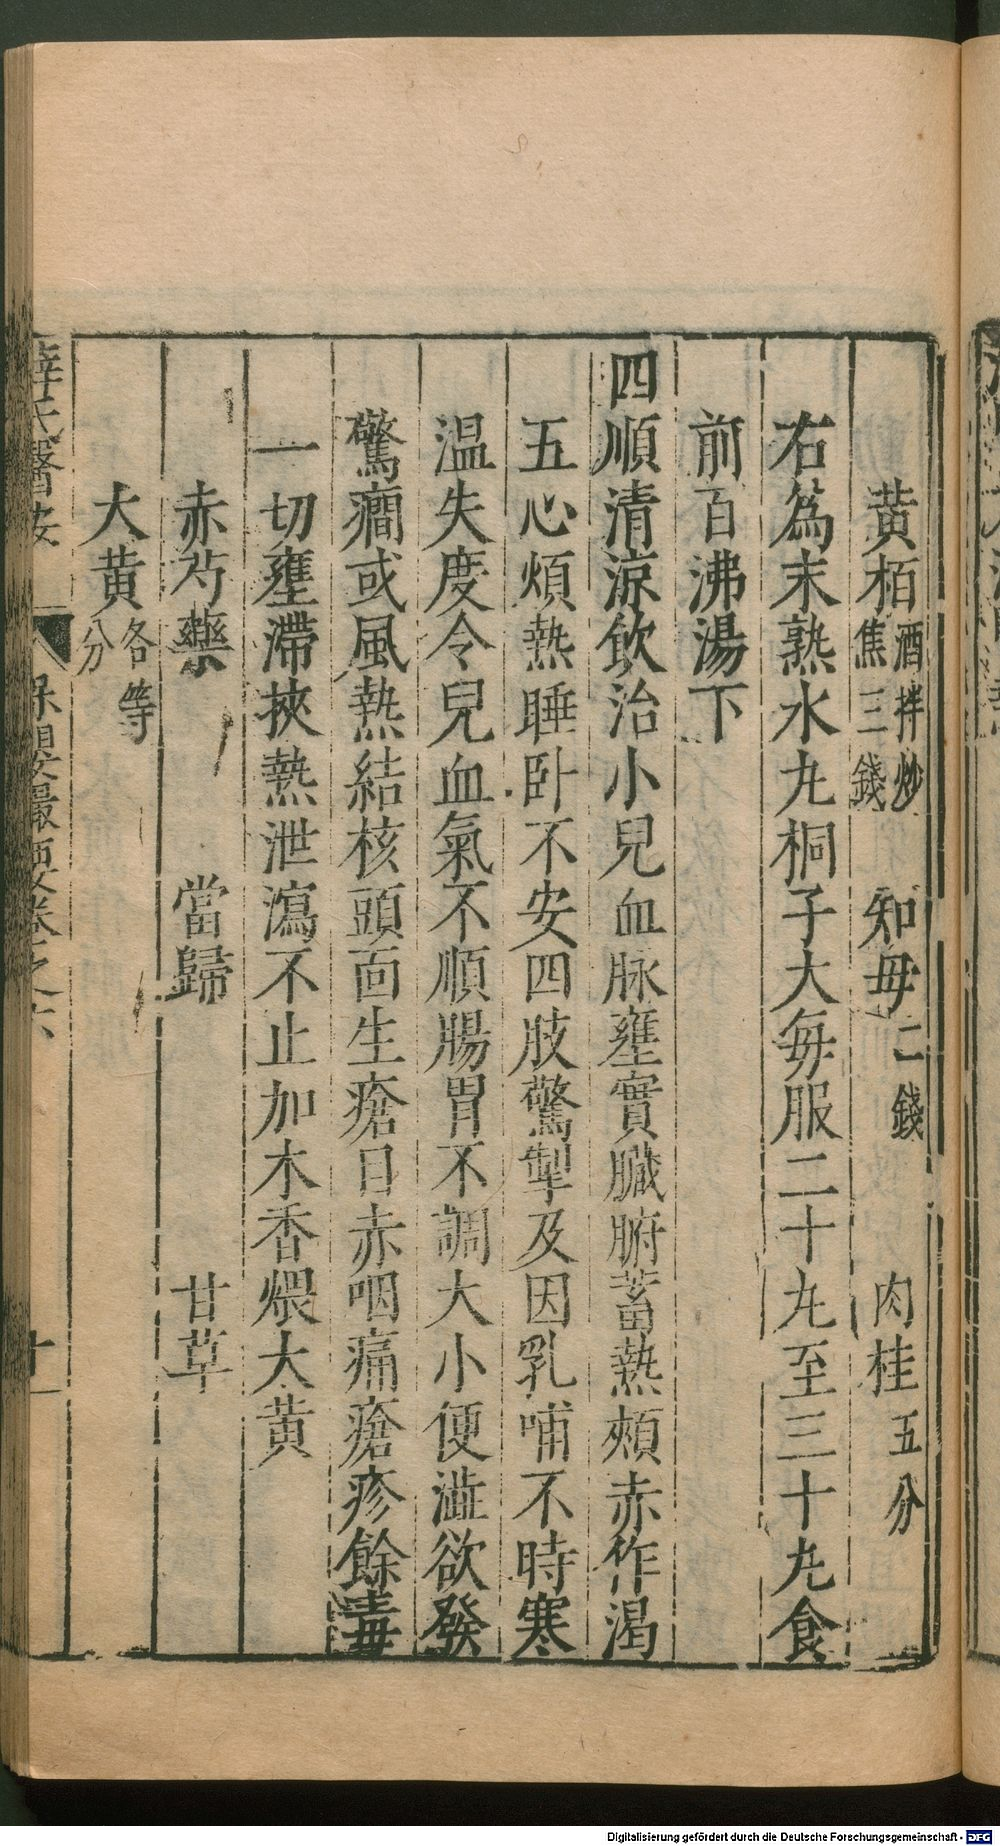 黄栢酒拌炒焦三錢 知毋二錢 肉桂五分
右爲末熟水𠃔桐子大每服二十𠃔至三十𠃔食
前百沸湯下
四順清涼飲治小兒血脉壅實臟腑蓄熱頰赤作渴
五心煩熱睡卧不安四肢驚掣及因乳哺不時寒
温失度令兒血氣不順腸胃不調大小便澁欲發
驚癎或風熱結核頭面生瘡目赤咽痛瘡疹餘毒
一切壅滯挾熱泄瀉不止加木香煨大黄
赤芍藥 當歸 甘草
大黄各等分
薛氏醫按 保嬰撮要卷之六
Digitalisierung gefördert durch die Deutsche Forschungsgemeinschaft - DFG